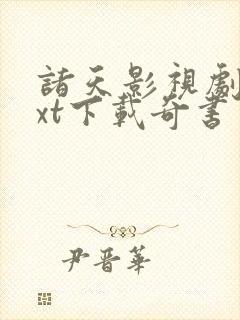 諸天影視劇
xt下載奇書
尹晋華